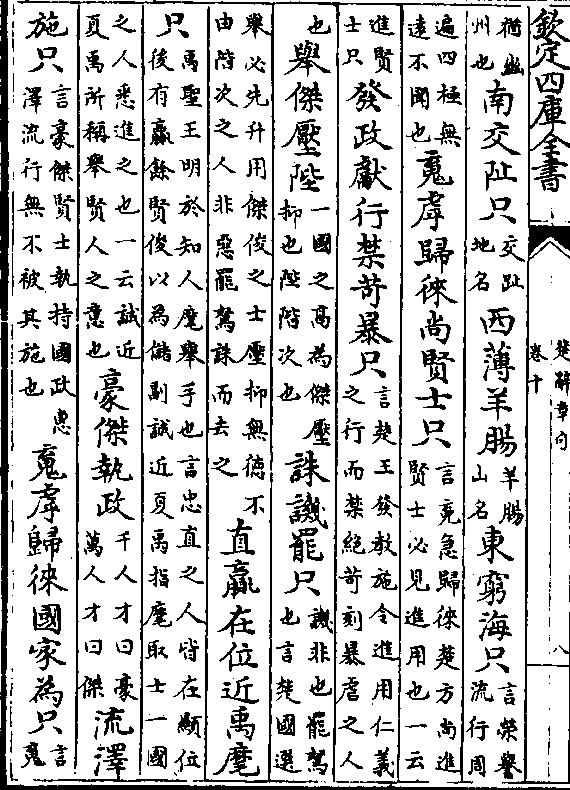 欽定四庫全書
楚辭章句
卷十
八
猶幽州也南交阯只交趾地名西薄羊腸羊腸山名東窮海只言榮譽流行周
遍四極無遠不聞也䰟虖歸徠尚賢士只言䰟急歸徠楚方尚進賢士必見進用也一云
進賢士只發政獻行禁苛暴只言楚王發教施令進用仁義之行而禁絕苛刻暴虐之人
也舉傑壓陛一國之高為傑壓抑也陛階次也誅譏罷只譏非也罷駑也言楚國選
舉必先升用傑俊之士壓抑無德不由階次之人非惡罷駑誅而去之直贏在位近禹麾
只禹聖王明於知人麾舉手也言忠直之人皆在顯位後有贏餘賢俊以為儲副誠近夏禹指麾取士一國
之人悉進之也一云誠近夏禹所稱舉賢人之意也豪傑執政千人才曰豪萬人才曰傑流澤
施只言豪傑賢士執持國政惠澤流行無不被其施也䰟虖歸徠國家為只言䰟